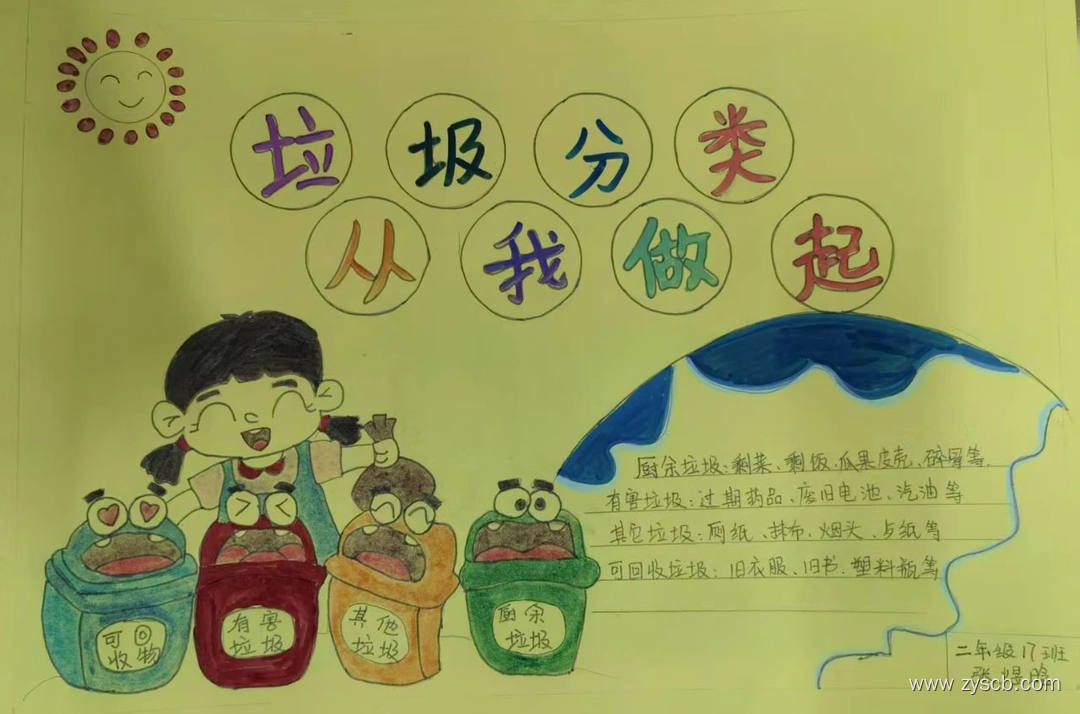 垃圾分类
从我做起
厨余垃圾:剩菜、剩饭、瓜果皮壳、碎骨等.
有害垃圾:过期药品、废旧电池、汽油等
其它垃圾:厕纸、抹布、烟头、与纸等
可回收垃圾:旧衣服、旧书.塑料瓶等
可回
收物
有害
垃圾
其他
垃圾
厨余
垃圾
二年级17班
张煜晗
www.zyscb.com